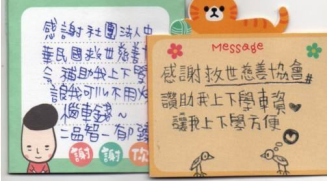 感謝社團法人中
華民國救世慈善
補助我上下學
讓我可以不用
謝謝你
Message
感謝救世慈善協會
讚助我上下學車資
讓我上下學方便